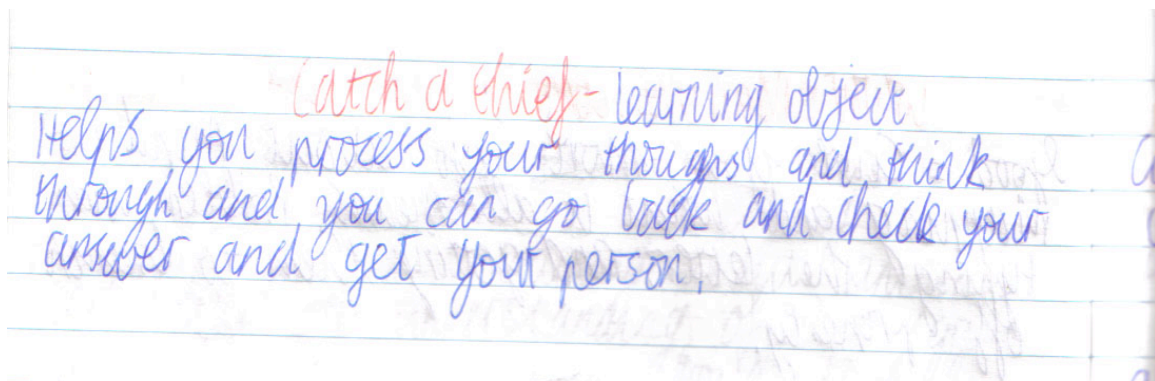 Catch a thief - learning object
Helps you process your thoughs and think
through and you can go back and check your
answer and get your person.